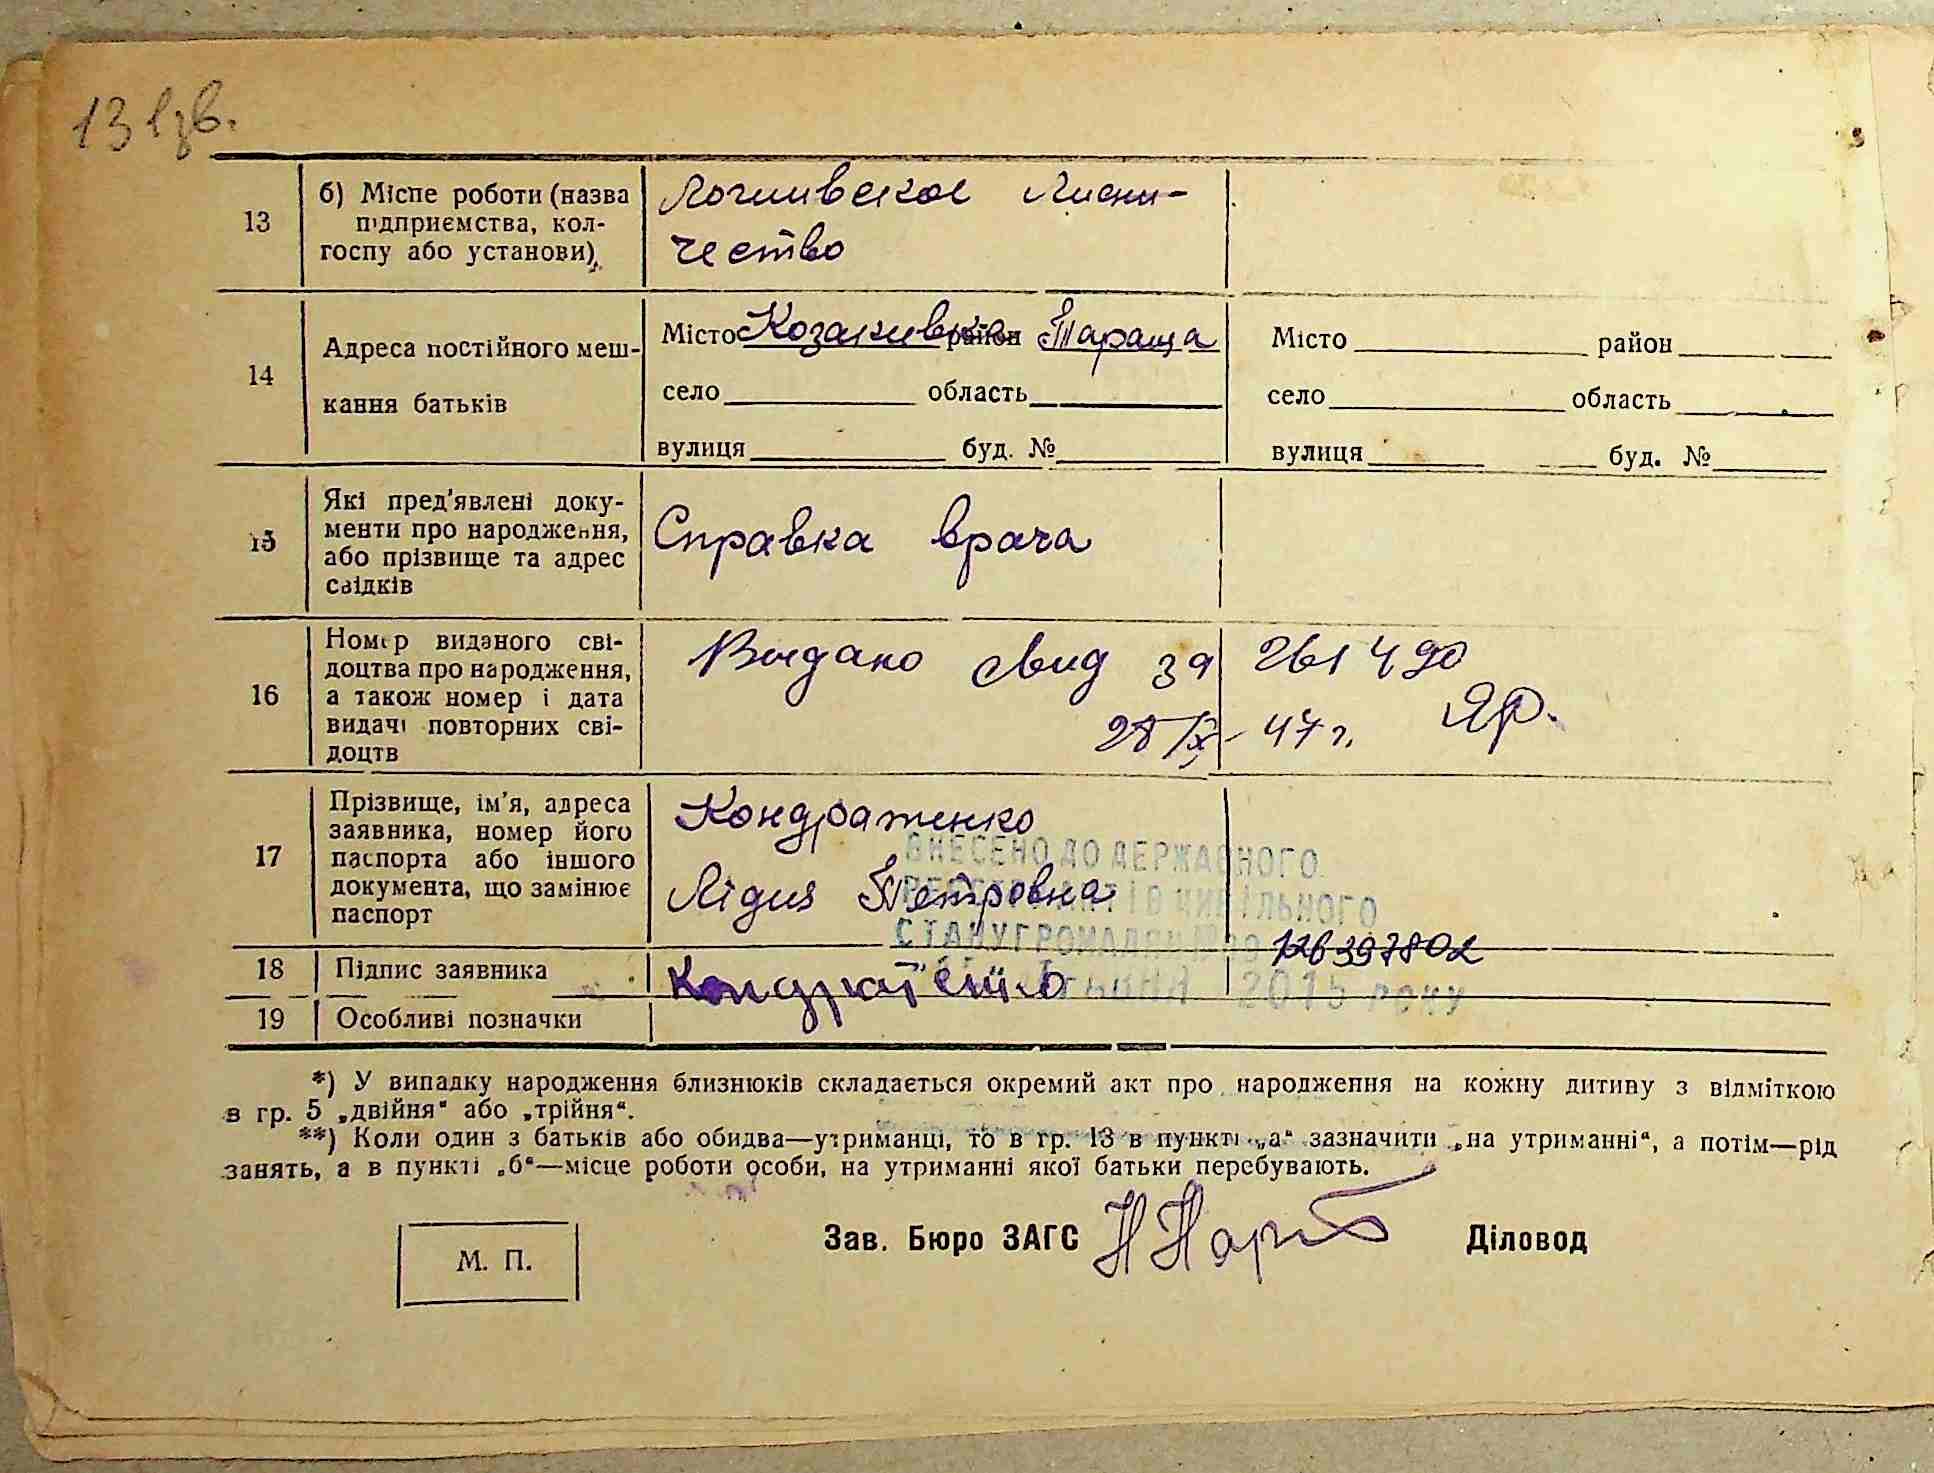 13 зв.
13
б) Місце роботи (назва
підприємства, кол-
госпу або установи)
Логвивское Лисни-
чество
14
Адреса постійного меш-
кання батьків
Місто Козакивка район Тараща
село область
вулиця буд. №
Місто район
село область
вулиця буд. №
15
Які пред'явлені доку-
менти про народження,
або прізвище та адрес
свідків
Справка врача
16
Номер виданого сві-
доцтва про народження,
а також номер і дата
видачі повторних сві-
доцтв
Выдано свид за 261490
28/IX-47 г. ЯР.
17
Прізвище, ім'я, адреса
заявника, номер його
паспорта або іншого
документа, що замінює
паспорт
Кондратенко
Лідия Петровна
ВНЕСЕНО ДО ДЕРЖАВНОГО
РЕЄСТРУ АКТІВ ЦИВІЛЬНОГО
СТАНУ ГРОМАДЯН №00
126397802
2015 РОКУ
18
Підпис заявника
Кондратенко
19
Особливі позначки
*) У випадку народження близнюків складається окремий акт про народження на кожну дитину з відміткою
в гр. 5 „двійня“ або „трійня“.
**) Коли один з батьків або обидва—утриманці, то в гр. 13 в пункті „а“ зазначити „на утриманні“, а потім—рід
занять, а в пункті „б“—місце роботи особи, на утриманні якої батьки перебувають.
М. П.
Зав. Бюро ЗАГС
Діловод